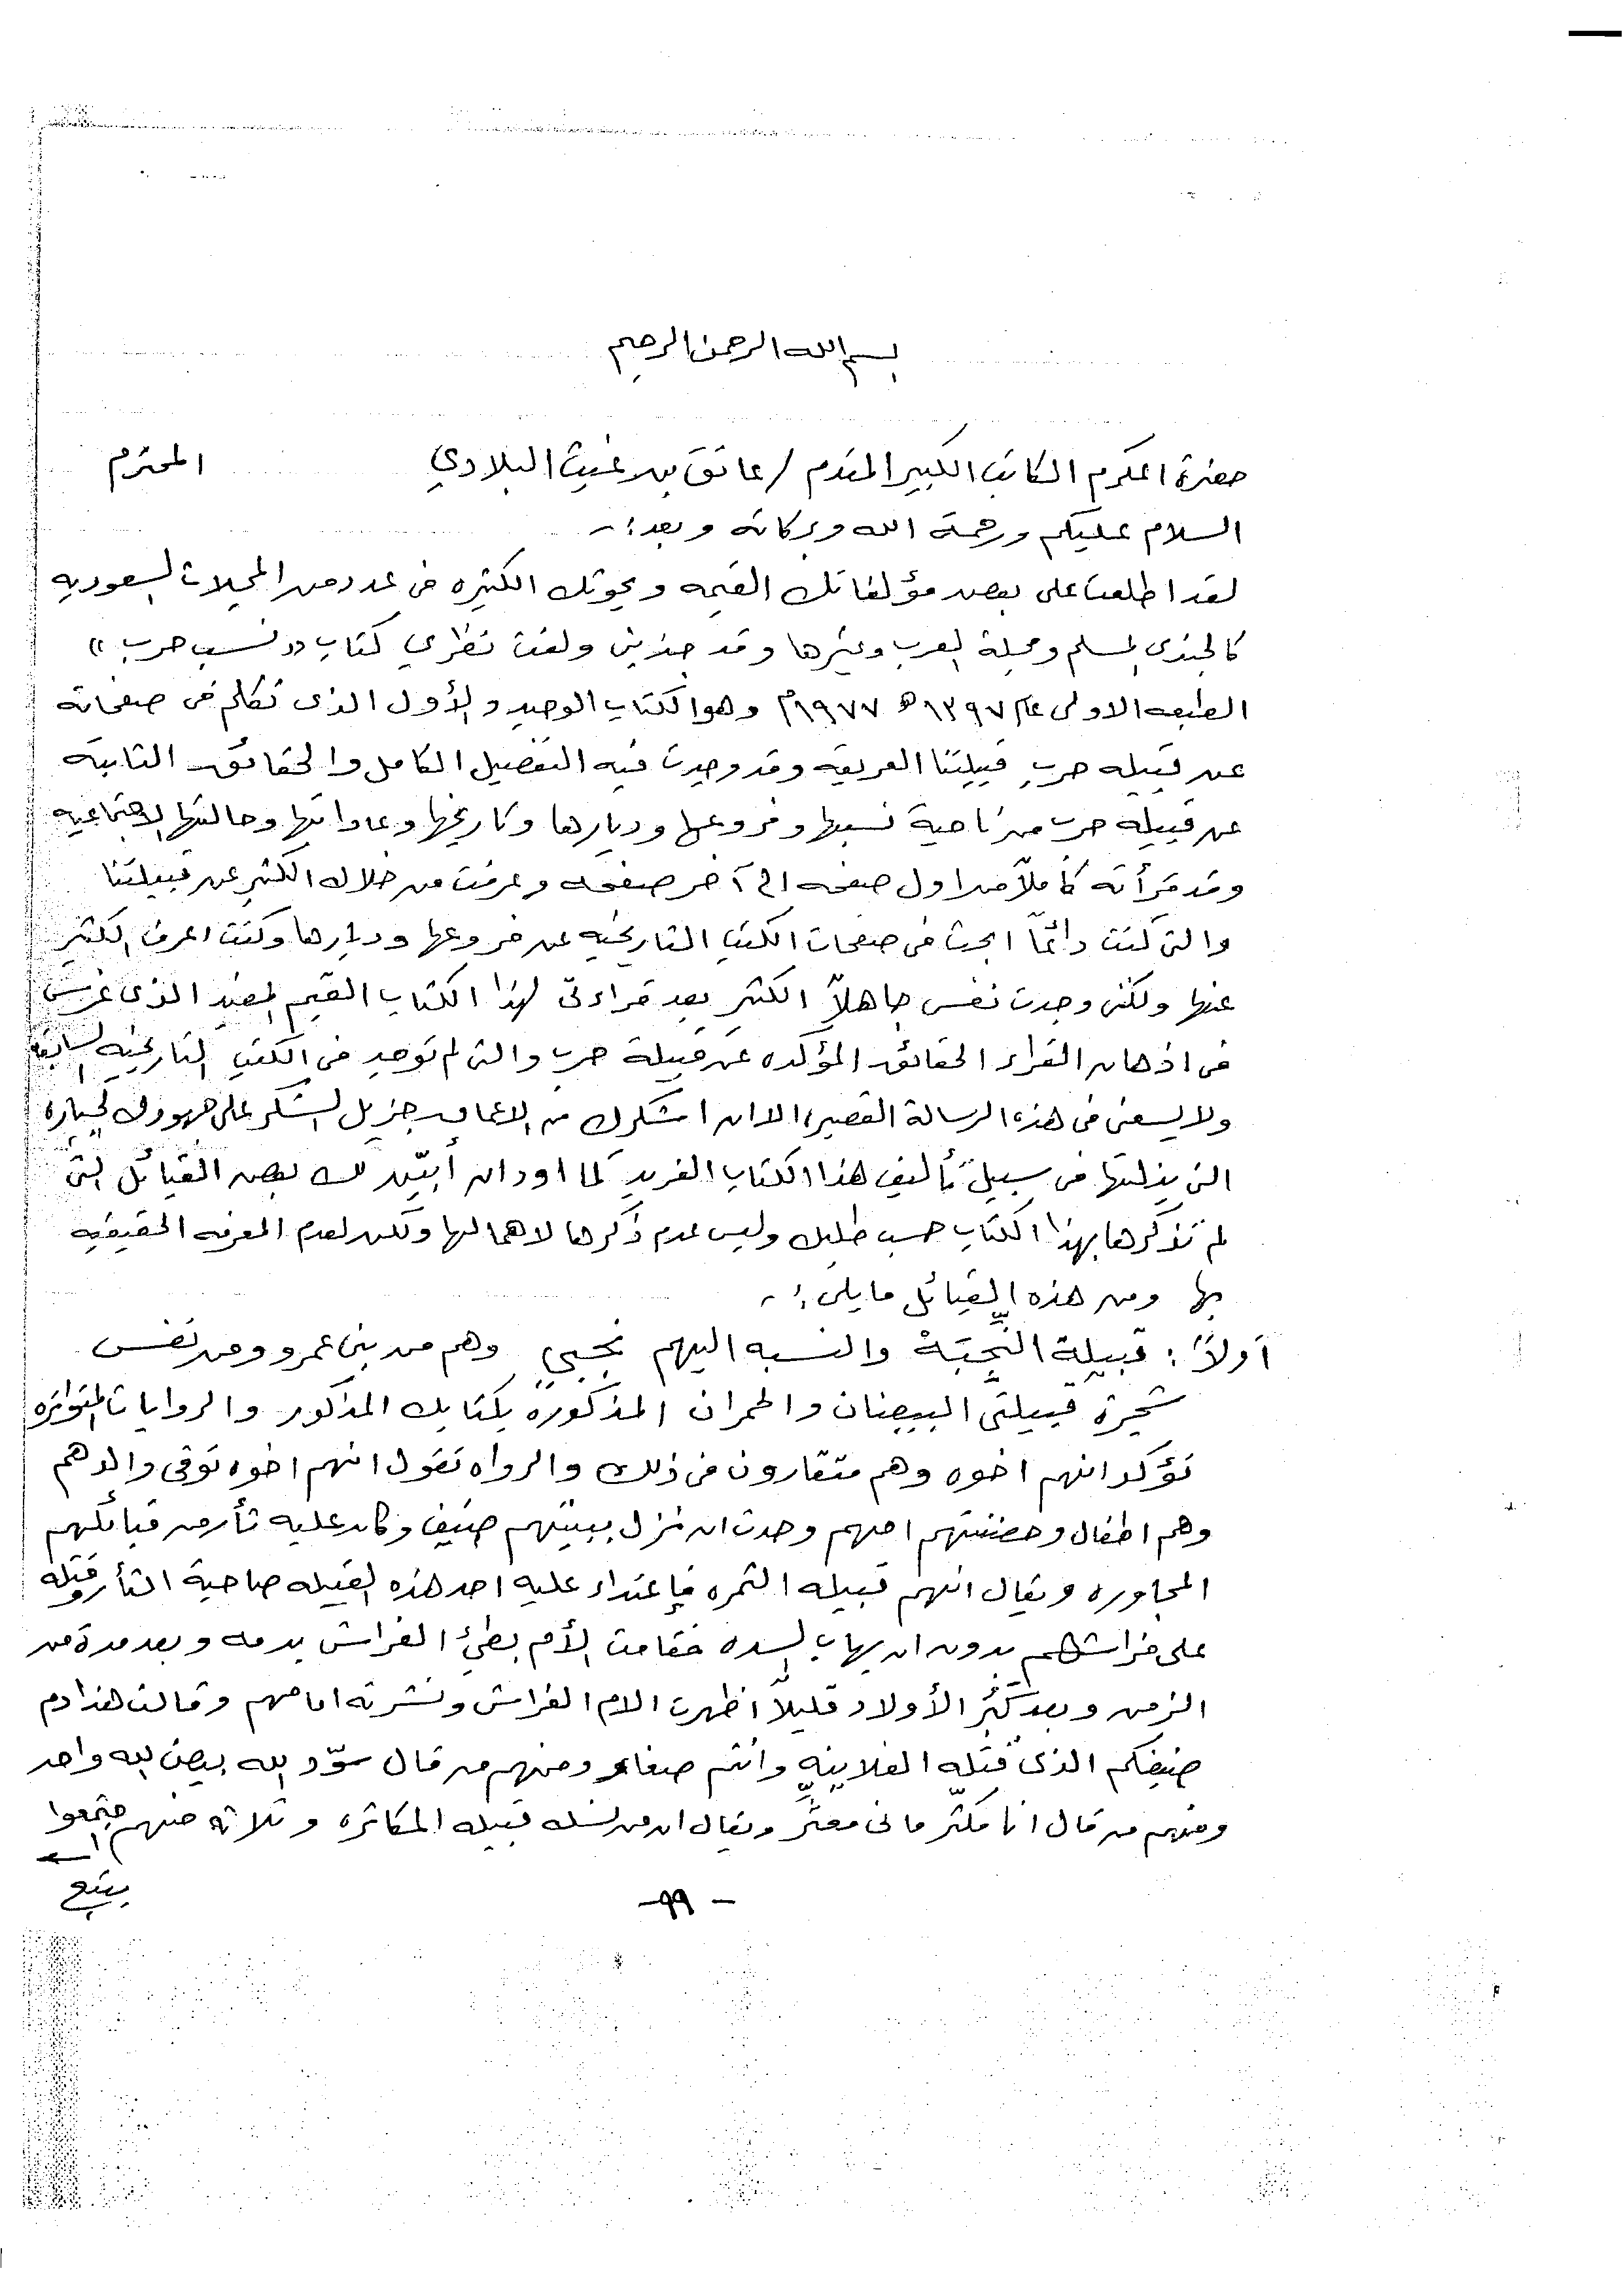 بسم الله الرحمن الرحيم
حضرة المكرم الكاتب الكبير المقدم / عاتق بن غيث البلادي المحترم
السلام عليكم ورحمة الله وبركاته وبعد :-
لقد اطلعت على بعض مؤلفاتك القيمه وبحوثك الكثيره في عدد من المجلات السعوديه
كالجندي المسلم ومجلة العرب وغيرها وقد جذبني ولفت نظري كتاب « نسب حرب »
الطبعه الاولى عام ١٣٩٧ هـ ١٩٧٧م وهو الكتاب الوحيد والأول الذى تكلم في صفحاته
عن قبيله حرب قبيلتنا العريقه وقد وجدت فيه التفصيل الكامل والحقائق الثابته
عن قبيله حرب من ناحية نسبها وفروعها وديارها وتاريخها وعاداتها وحالتها الاجتماعيه
وقد قرأته كاملاً من اول صفحه الى آخر صفحه وعرفت من خلاله الكثير عن قبيلتنا
والتي كنت دائماً ابحث في صفحات الكتب التاريخيه عن فروعها وديارها وكنت اعرف الكثير
عنها ولكني وجدت نفسي جاهلاً الكثير بعد قراءتي لهذا الكتاب القيم المفيد الذى غرس
في اذهان القراء الحقائق المؤكده عن قبيلة حرب والتي لم توجد في الكتب التاريخيه السابقه
ولا يسعني في هذه الرسالة القصيره الا ان اشكرك من الاعماق جزيل الشكر على جهودك الجباره
التي بذلتها في سبيل تأليف هذا الكتاب الفريد كما اود ان أبيّن لك بعض القبائل التي
لم تذكرها بهذا الكتاب حسب طلبك وليس عدم ذكرها لاهمالها ولكن لعدم المعرفه الحقيقيه
بها ومن هذه القبائل مايلي :-
أولاً : قبيلة النُّجَبَة والنسبه اليهم نجبي وهم من بني عمرو ومن نفس
شجرة قبيلتي البيضان والحمران المذكوره بكتابك المذكور والروايات المتواتره
تؤكد انهم اخوه وهم متقارون في ذلك والرواه تقول انهم اخوه توفي والدهم
وهم اطفال وحضنتهم امهم وحدث ان نزل ببيتهم ضيف وكان عليه ثأر من قبائلهم
المجاوره ويقال انهم قبيله الثمره فإعتداء عليه احد هذه القبيله صاحبة الثأر وقتله
على فراشهم بدون ان يهاب السده فقامت الأم بطيّ الفراش بدمه وبعد مدة من
الزمن وبعد كبُر الأولاد قليلاً اظهرت الام الفراش ونشرته امامهم وقالت هذا دم
ضيفكم الذى قتله الفلانيه وانتم صغار ومنهم من قال سوّد الله بيض الله واحد
ومنهم من قال انا مكثّر ماني معثّر ويقال ان من نسله قبيله المكاثره وثلاثه منهم اجتمعوا
يتبع
- ٩٩ -